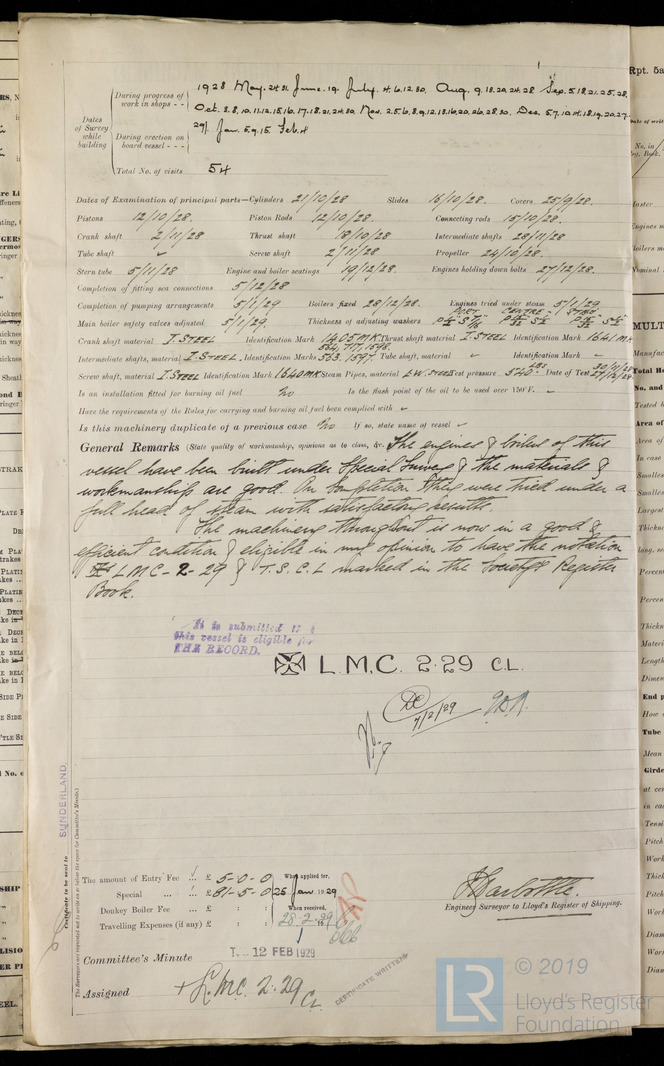 Rpt. 5a
During progress of work in shops - - 1928 May. 24.31 June. 19 July. 4.6.12.30. Aug. 9.18.20.24.28 Sep. 5.18.21.25.28.
Oct. 3.8.10.11.12.15.16.17.18.21.24.30. Nov. 2.5.6.8.9.12.13.16.20.26.28.30. Dec. 5.7.10.14.18.19.20.27.
Dates of Survey while building
During erection on board vessel - - - 29/ Jan. 5.9.15 Feb. 4
Total No. of visits 54
Dates of Examination of principal parts—Cylinders 21/10/28 Slides 16/10/28. Covers 25/9/28.
Pistons 12/10/28. Piston Rods 12/10/28. Connecting rods 15/10/28.
Crank shaft 2/11/28 Thrust shaft 18/10/28 Intermediate shafts 28/11/28
Tube shaft ✓ Screw shaft 2/11/28 Propeller 24/10/28.
Stern tube 5/11/28 Engine and boiler seatings 19/12/28. Engines holding down bolts 27/12/28.
Completion of fitting sea connections 5/12/28
Completion of pumping arrangements 5/1/29 Boilers fixed 28/12/28. Engines tried under steam 5/1/29
PORT CENTRE STBD
Main boiler safety valves adjusted 5/1/29. Thickness of adjusting washers
Crank shaft material I. STEEL Identification Mark 1405 MK. Thrust shaft material I. STEEL Identification Mark 1641 MK
564. 717. 1598.
Intermediate shafts, material I. STEEL. Identification Marks 563. 1597. Tube shaft, material ✓ Identification Mark –
Screw shaft, material I. STEEL Identification Mark 1640 MK Steam Pipes, material LW. STEEL Test pressure 540 LBS Date of Test 30/11/28 27/12/28
Is an installation fitted for burning oil fuel No Is the flash point of the oil to be used over 150°F. ✓
Have the requirements of the Rules for carrying and burning oil fuel been complied with ✓
Is this machinery duplicate of a previous case No If so, state name of vessel ✓
General Remarks (State quality of workmanship, opinions as to class, &c. The engines & boilers of this
vessel have been built under Special Survey & the materials &
workmanship are good. On completion they were tried under a
full head of steam with satisfactory results.
The machinery throughout is now in a good &
efficient condition & eligible in my opinion to have the notation
✠ LMC - 2 - 29 & T.S.C.L marked in the Society's Register
Book.
It is submitted that
this vessel is eligible for
THE RECORD.
✠ L.M.C. 2.29 CL.
7/2/29
SUNDERLAND.
Certificate to be sent to
(The Surveyors are requested not to write on or below the space for Committee's Minute.)
The amount of Entry Fee ... £ 5-0-0 When applied for,
Special ... ... £ 81-5-0 25 Jan 1929
Donkey Boiler Fee ... £ : : When received,
Travelling Expenses (if any) £ : : 28.2.1929
Engineer Surveyor to Lloyd's Register of Shipping.
Committee's Minute T. 12 FEB 1929
Assigned + L.M.C. 2.29 CL
CERTIFICATE WRITTEN
LR
© 2019
Lloyd's Register
Foundation